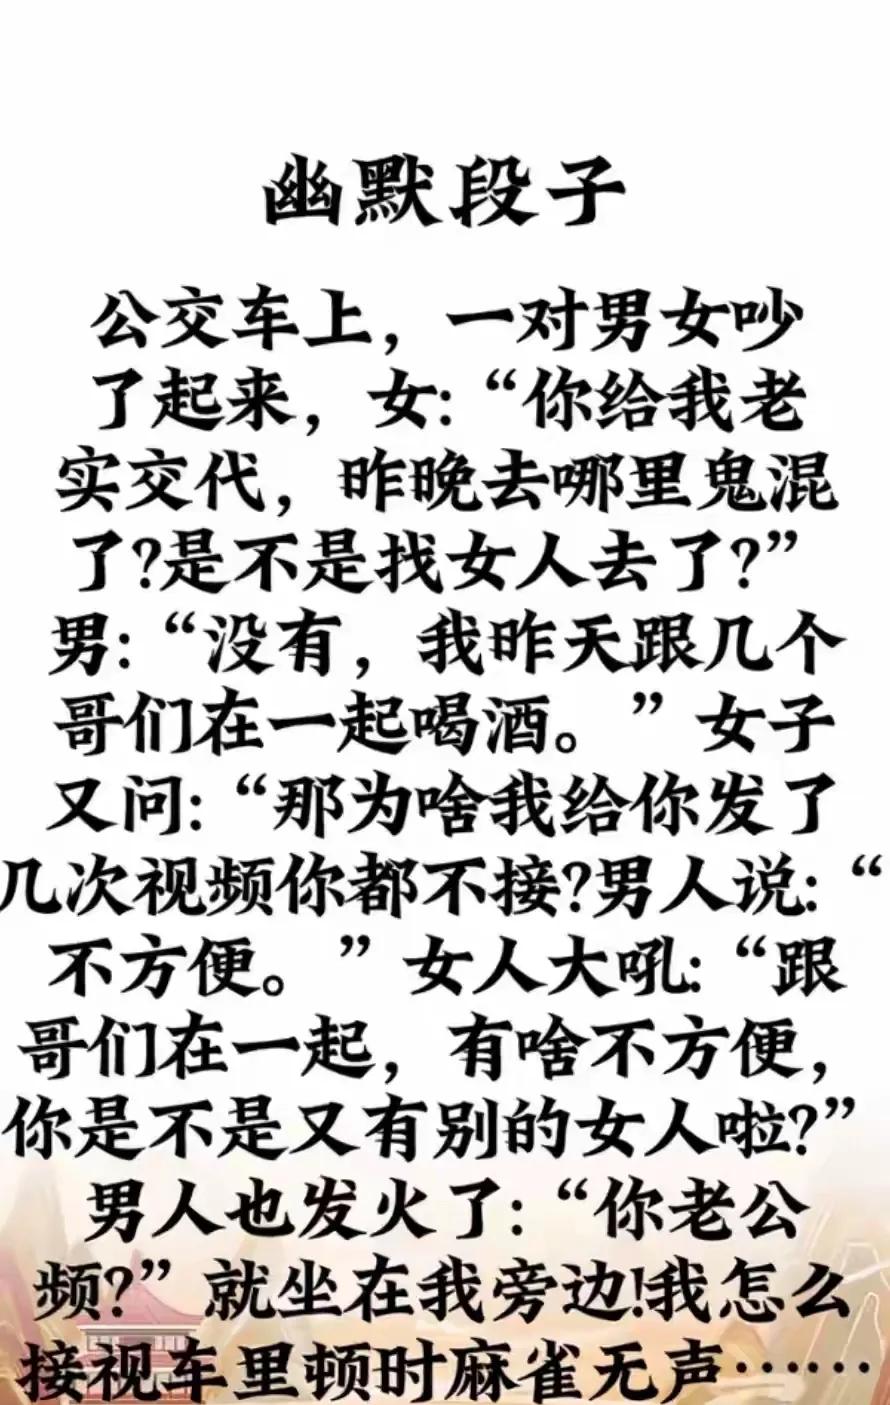 幽默段子
公交车上，一对男女吵
了起来，女:“你给我老
实交代，昨晚去哪里鬼混
了?是不是找女人去了?”
男:“没有，我昨天跟几个
哥们在一起喝酒。”女子
又问:“那为啥我给你发了
几次视频你都不接?男人说:“
不方便。”女人大吼:“跟
哥们在一起，有啥不方便，
你是不是又有别的女人啦?”
男人也发火了:“你老公
频?”就坐在我旁边!我怎么
接视车里顿时麻雀无声……